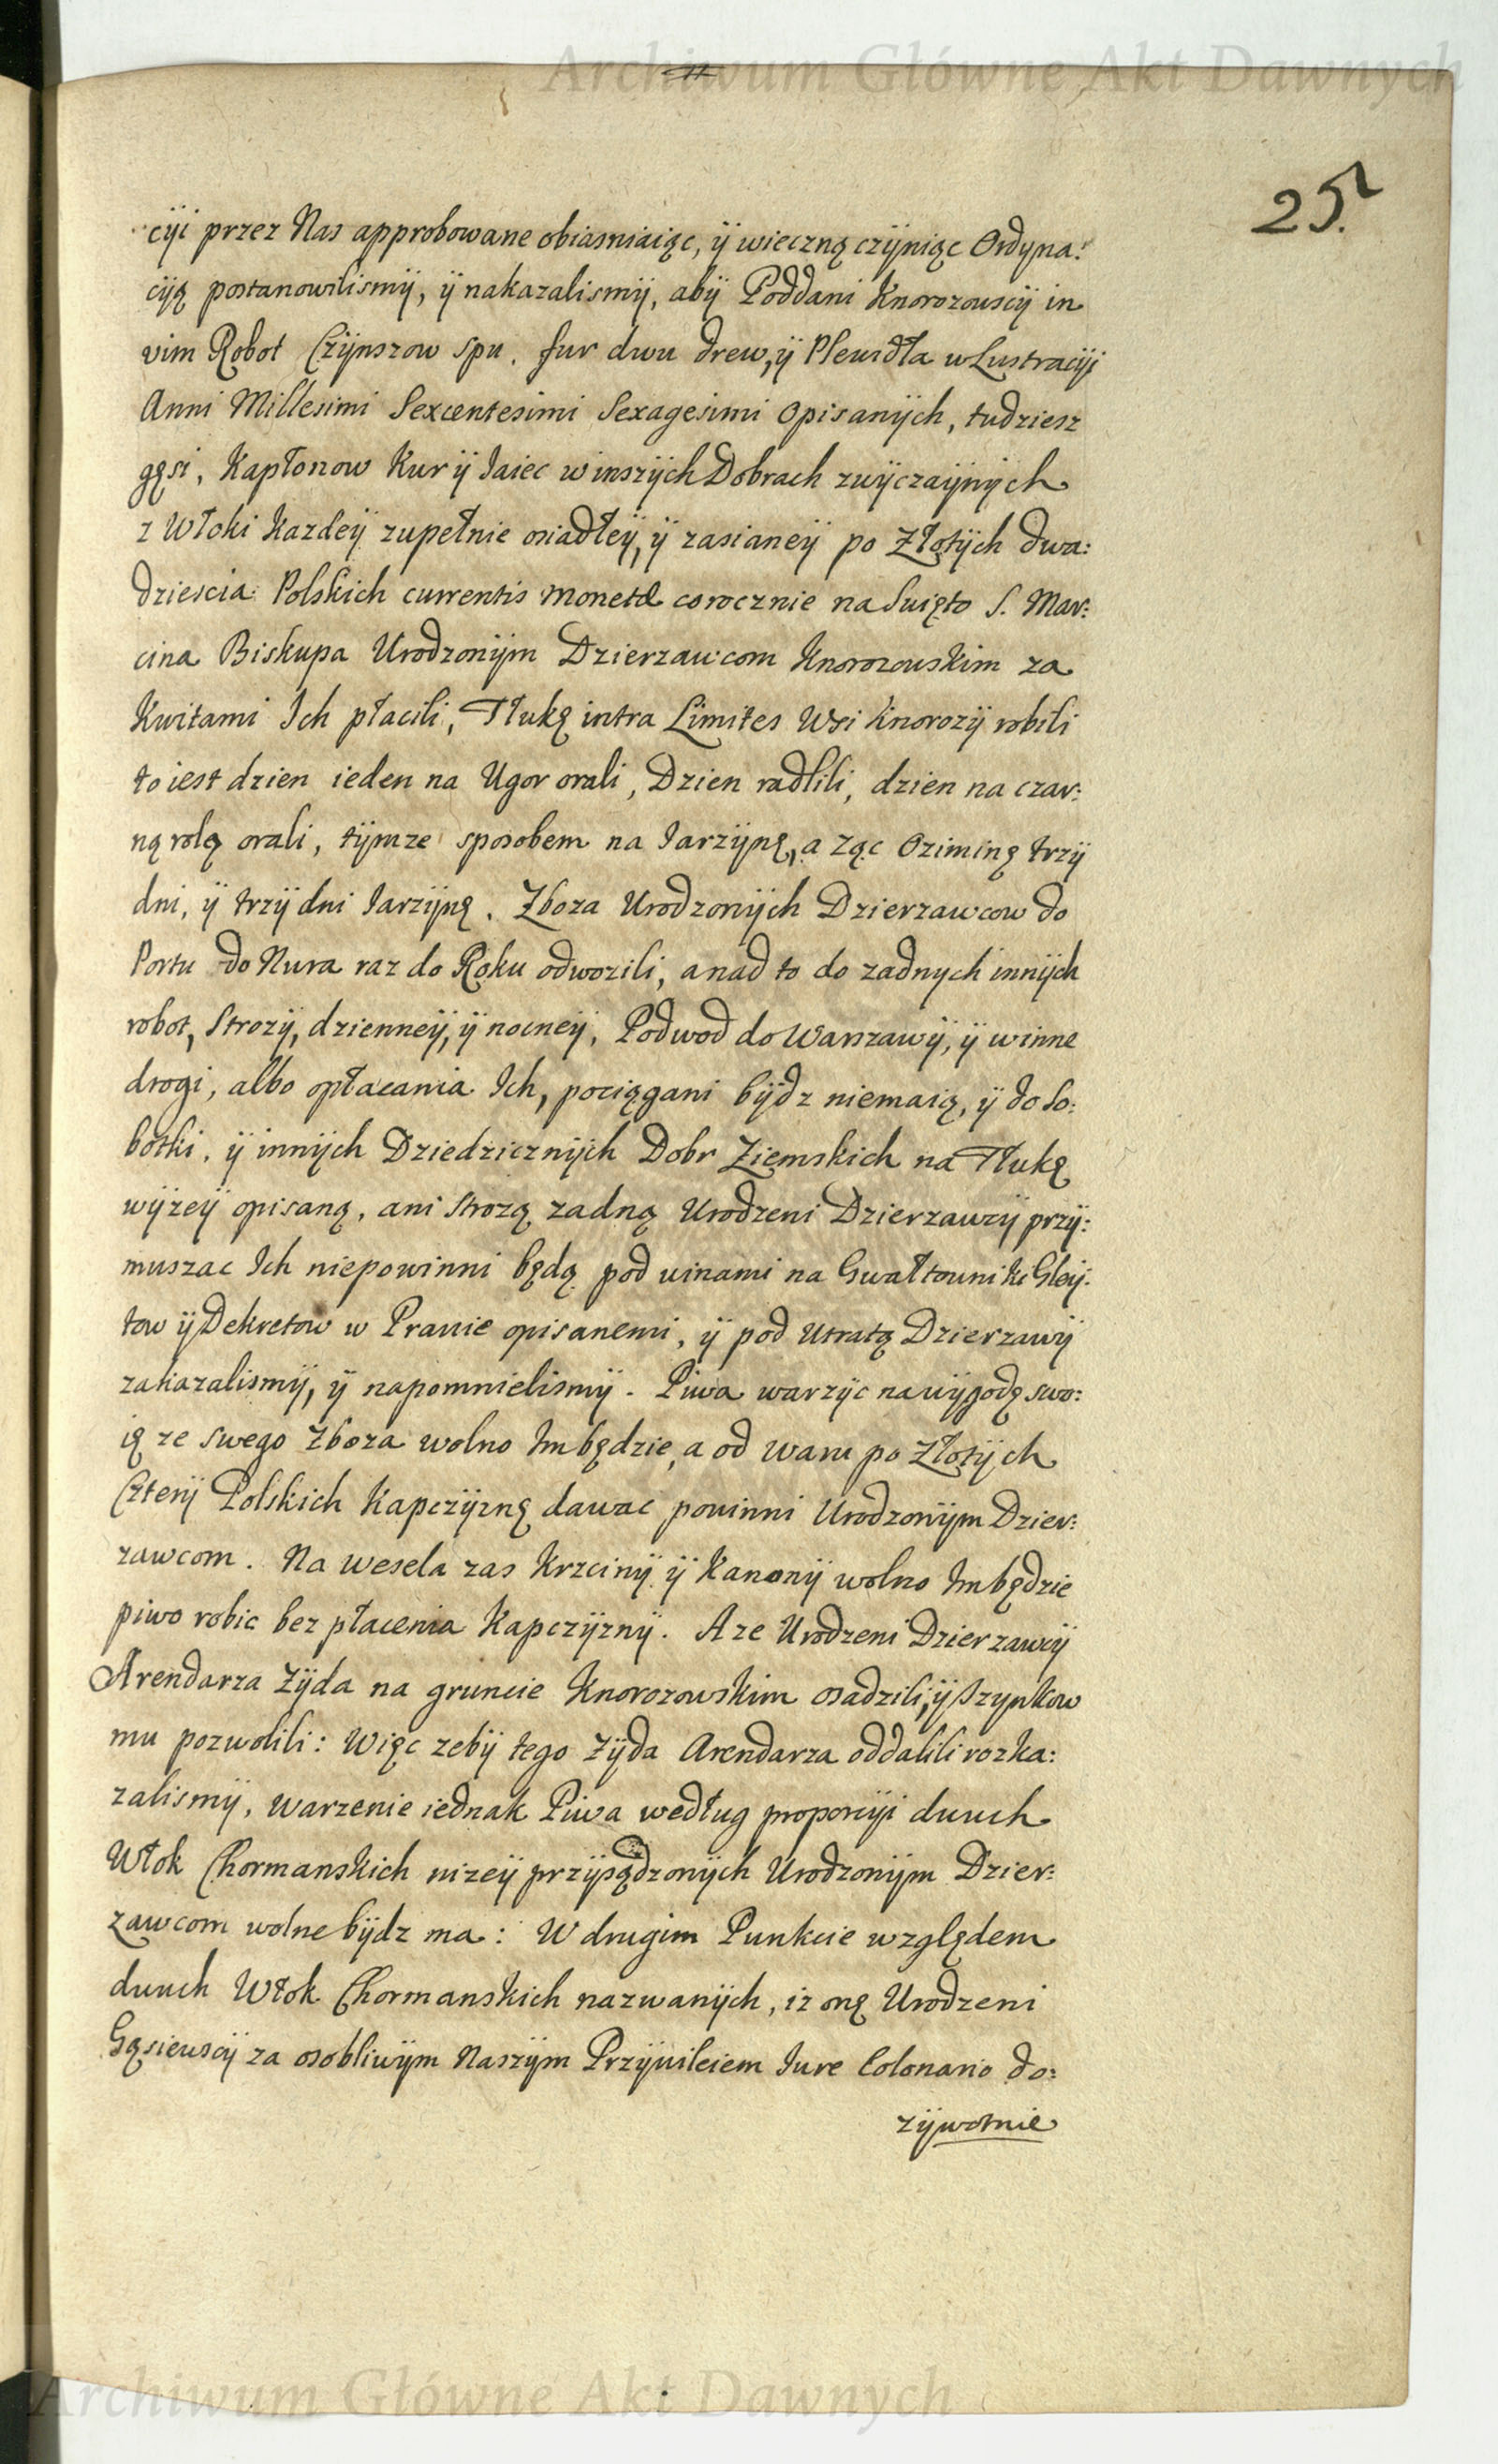 Archiwum Główne Akt Dawnych
25.
cÿi przez Nas approbowane obiasniaiąc, ÿ wieczną czÿniąc Ordyna:
cÿą postanowilismÿ, ÿ nakazalismÿ, abÿ Poddani Knorozouscÿ in
vim Robot Czÿnszow Spu. fur dwu drew, ÿ Pleuidła w Lustracÿi
Anni Millesimi Sexcentesimi Sexagesimi Opisanÿch, tudziesz
gęsi, Kapłonow Kur ÿ Iaiec w inszÿch Dobrach zwÿczaÿnÿch
z Włoki Kazdeÿ zupełnie osiadłeÿ, ÿ zasianeÿ po Złotÿch dwa:
dziescia Polskich currentis monetæ corocznie na Suięto S. Mar:
cina Biskupa Urodzonÿm Dzierzawcom Knorozouskim za
Kwitami Ich płacili, Tłukę intra Limites Wsi Knorozÿ robili
to iest dzien ieden na Ugor orali, Dzien radlili, dzien na czar:
ną rolą orali, tÿmze sposobem na Iarzÿnę, a Ząc Oziminę trzÿ
dni, ÿ trzÿ dni Iarzÿnę. Zboza Urodzonÿch Dzierzawcow do
Portu do Nura raz do Roku odwozili, a nad to do zadnych innÿch
robot, Strozÿ, dzienneÿ, ÿ nocneÿ, Podwod do Warszawÿ, ÿ w inne
drogi, albo opłacania Ich, pociągani bÿdz niemaią, ÿ do So:
botki, ÿ innÿch Dziedzicznÿch Dobr Ziemskich na Tłukę
wÿzeÿ opisaną, ani Strozą zadną Urodzeni Dzierzawcÿ przÿ:
muszac Ich niepowinni będą pod uinami na Gwałtouniki Gleÿ:
tow ÿ Dekretow w Prawie opisanemi, ÿ pod Utratą Dzierzawÿ
zakazalismÿ, ÿ napomnielismÿ. Piwa warzÿc na uÿgodę swo:
ię ze swego Zboza wolno Im będzie, a od waru po Złotÿch
Czterÿ Polskich Kapczÿznę dawac powinni Urodzonÿm Dzier:
zawcom. Na wesela zas Krzcinÿ ÿ Kanonÿ wolno Im będzie
piwo robic bez płacenia Kapczÿznÿ. A ze Urodzeni Dzierzawcÿ
Arendarza Zÿda na gruncie Knorozowskim osadzili, ÿ Szynkow
mu pozwolili: Więc zebÿ tego Zÿda Arendarza oddalili rozka:
zalismÿ, warzenie iednak Piwa według proporcÿi duuch
Włok Chormanskich nizeÿ przÿsądzonÿch Urodzonÿm Dzier:
zawcom wolne bÿdz ma: W drugim Punkcie względem
duuch Włok Chormanskich nazwanÿch, iz onę Urodzeni
Gąsieuscÿ za osobliwÿm Naszÿm Przÿuileiem Iure Colonario do:
zÿwotnie
Archiwum Główne Akt Dawnych